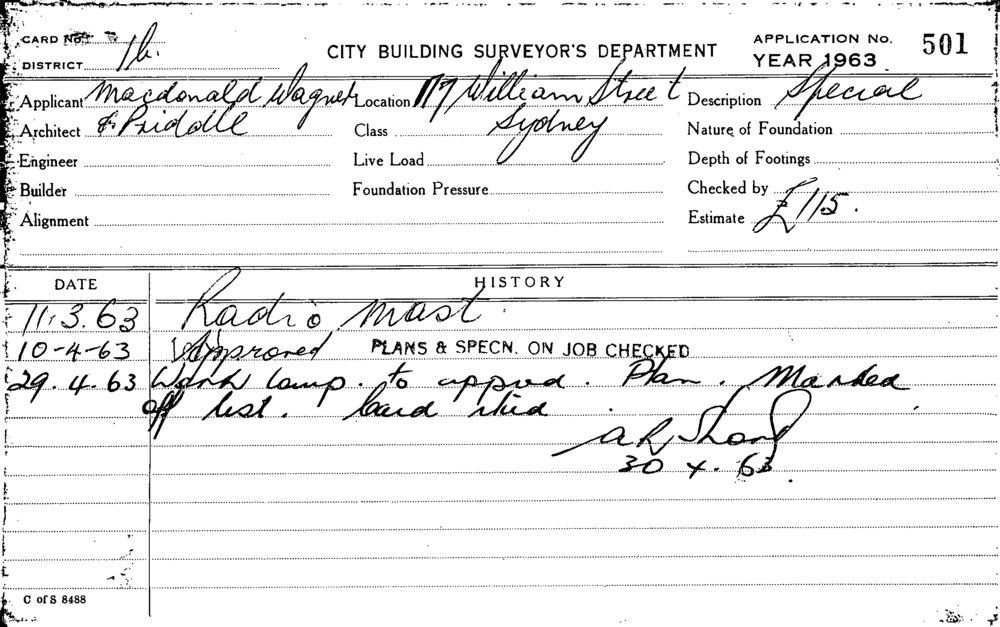 CARD No.
CITY BUILDING SURVEYOR'S DEPARTMENT
APPLICATION No. 501
DISTRICT 1b.
YEAR 1963
Applicant Macdonald Wagner Location 117, William Street Description Special
Architect & Priddle Class Sydney Nature of Foundation
Engineer Live Load Depth of Footings
Builder Foundation Pressure Checked by
Alignment Estimate £115.
DATE HISTORY
11.3.63 Radio Mast
10-4-63 Approved PLANS & SPECN. ON JOB CHECKED
29.4.63 Work comp. to appvd. Plan. Marked
off list. Card
30 4. 63.
C of S 8488